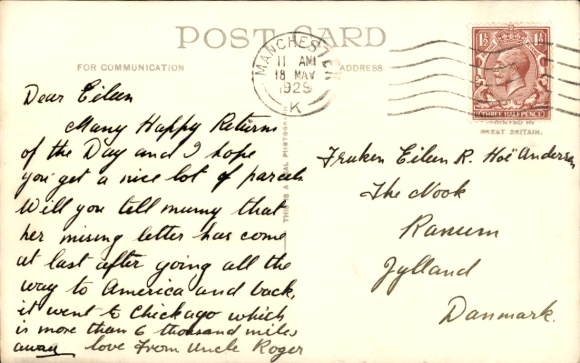 POST CARD
FOR COMMUNICATION
ADDRESS
MANCHESTER
11 AM
18 MAY
1929
K
1½ 1½
THREE HALF PENCE
PRINTED IN
GREAT BRITAIN.
THIS IS A REAL PHOTOGRAPH
Dear Eileen
Many Happy Returns
of the Day and I hope
you get a nice lot of parcels
Will you tell mumy that
her mising letter has come
at last after going all the
way to America and back,
it went to Chickago which
is more than 6 thousand miles
away love From Uncle Roger
Fruken Eileen R. Hoë Andersen
The Nook
Ranum
Jylland
Danmark.